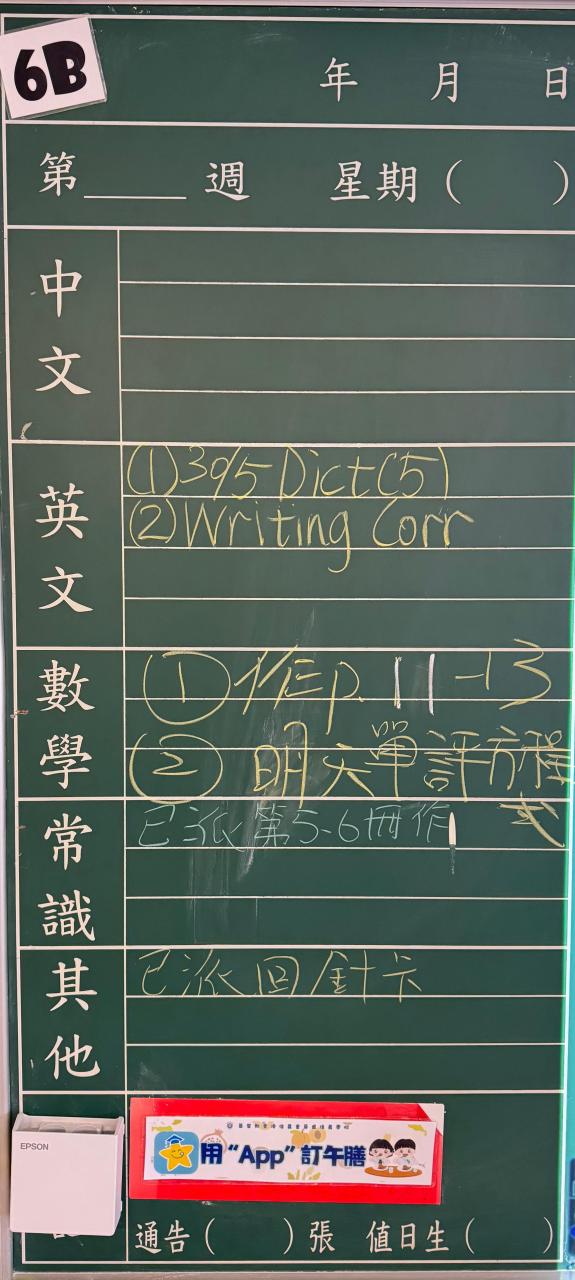 6B
年 月 日
第 週 星期( )
中文
英文
(1) 30/5 Dict (5)
(2) Writing Corr
數學
① 作 p. 11-13
② 明天單評方程式
常識
已派第5-6冊作
其他
已派回針卡
EPSON
用“App”訂午膳
通告( )張 值日生( )